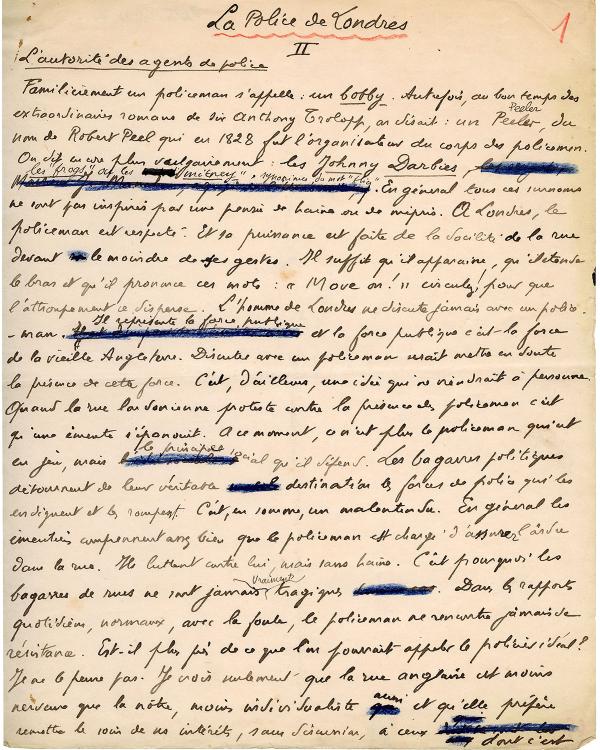 La Police de Londres
1
II
L'autorité des agents de police
Familièrement un policeman s'appelle : un bobby. Autrefois, au bon temps des
extraordinaires romans de sir Anthony Trolopp, on disait : un Peeler, du
Peeler
nom de Robert Peel qui en 1828 fut l'organisateur du corps des policemen.
On dit, encore plus vulgairement : les Johnny Darbies,
les "frogs" ou les "mitneys", synonimes du mot "flic". En général tous ces surnoms
ne sont pas inspirés par une pensée de haine ou de mépris. A Londres, le
policeman est respecté. Et sa puissance est faite de la docilité de la rue
devant le moindre de ses gestes. Il suffit qu'il apparaisse, qu'il étende
le bras et qu'il prononce ces mots : « Move on ! » circulez ! pour que
l'attroupement se disperse. L'homme de Londres ne discute jamais avec un police-
-man. Il représente la force publique et la force publique c'est la force
de la vieille Angleterre. Discuter avec un policeman serait mettre en doute
la présence de cette force. C'est, d'ailleurs, une idée qui ne viendrait à personne.
Quand la rue londonienne proteste contre la présence des policemen c'est
qu'une émeute s'épanouit. A ce moment, ce n'est plus le policeman qui est
en jeu, mais le principe social qu'il défend. Les bagarres politiques
détournent de leur véritable destination les forces de police qui les
endiguent et les rompent. C'est, en somme, un malentendu. En général les
émeutiers comprennent assez bien que le policeman est chargé d'assurer l'ordre
dans la rue. Ils luttent contre lui, mais sans haine. C'est pourquoi les
bagarres de rues ne sont jamais vraiment tragiques. Dans les rapports
quotidiens, normaux, avec la foule, le policeman ne rencontre jamais de
résistance. Est-il plus près de ce que l'on pourrait appeler le policier idéal ?
Je ne le pense pas. Je crois seulement que la rue anglaise est moins
nerveuse que la nôtre, moins individualiste aussi et qu'elle préfère
remettre le soin de ses intérêts, sans discussion, à ceux
dont c'est